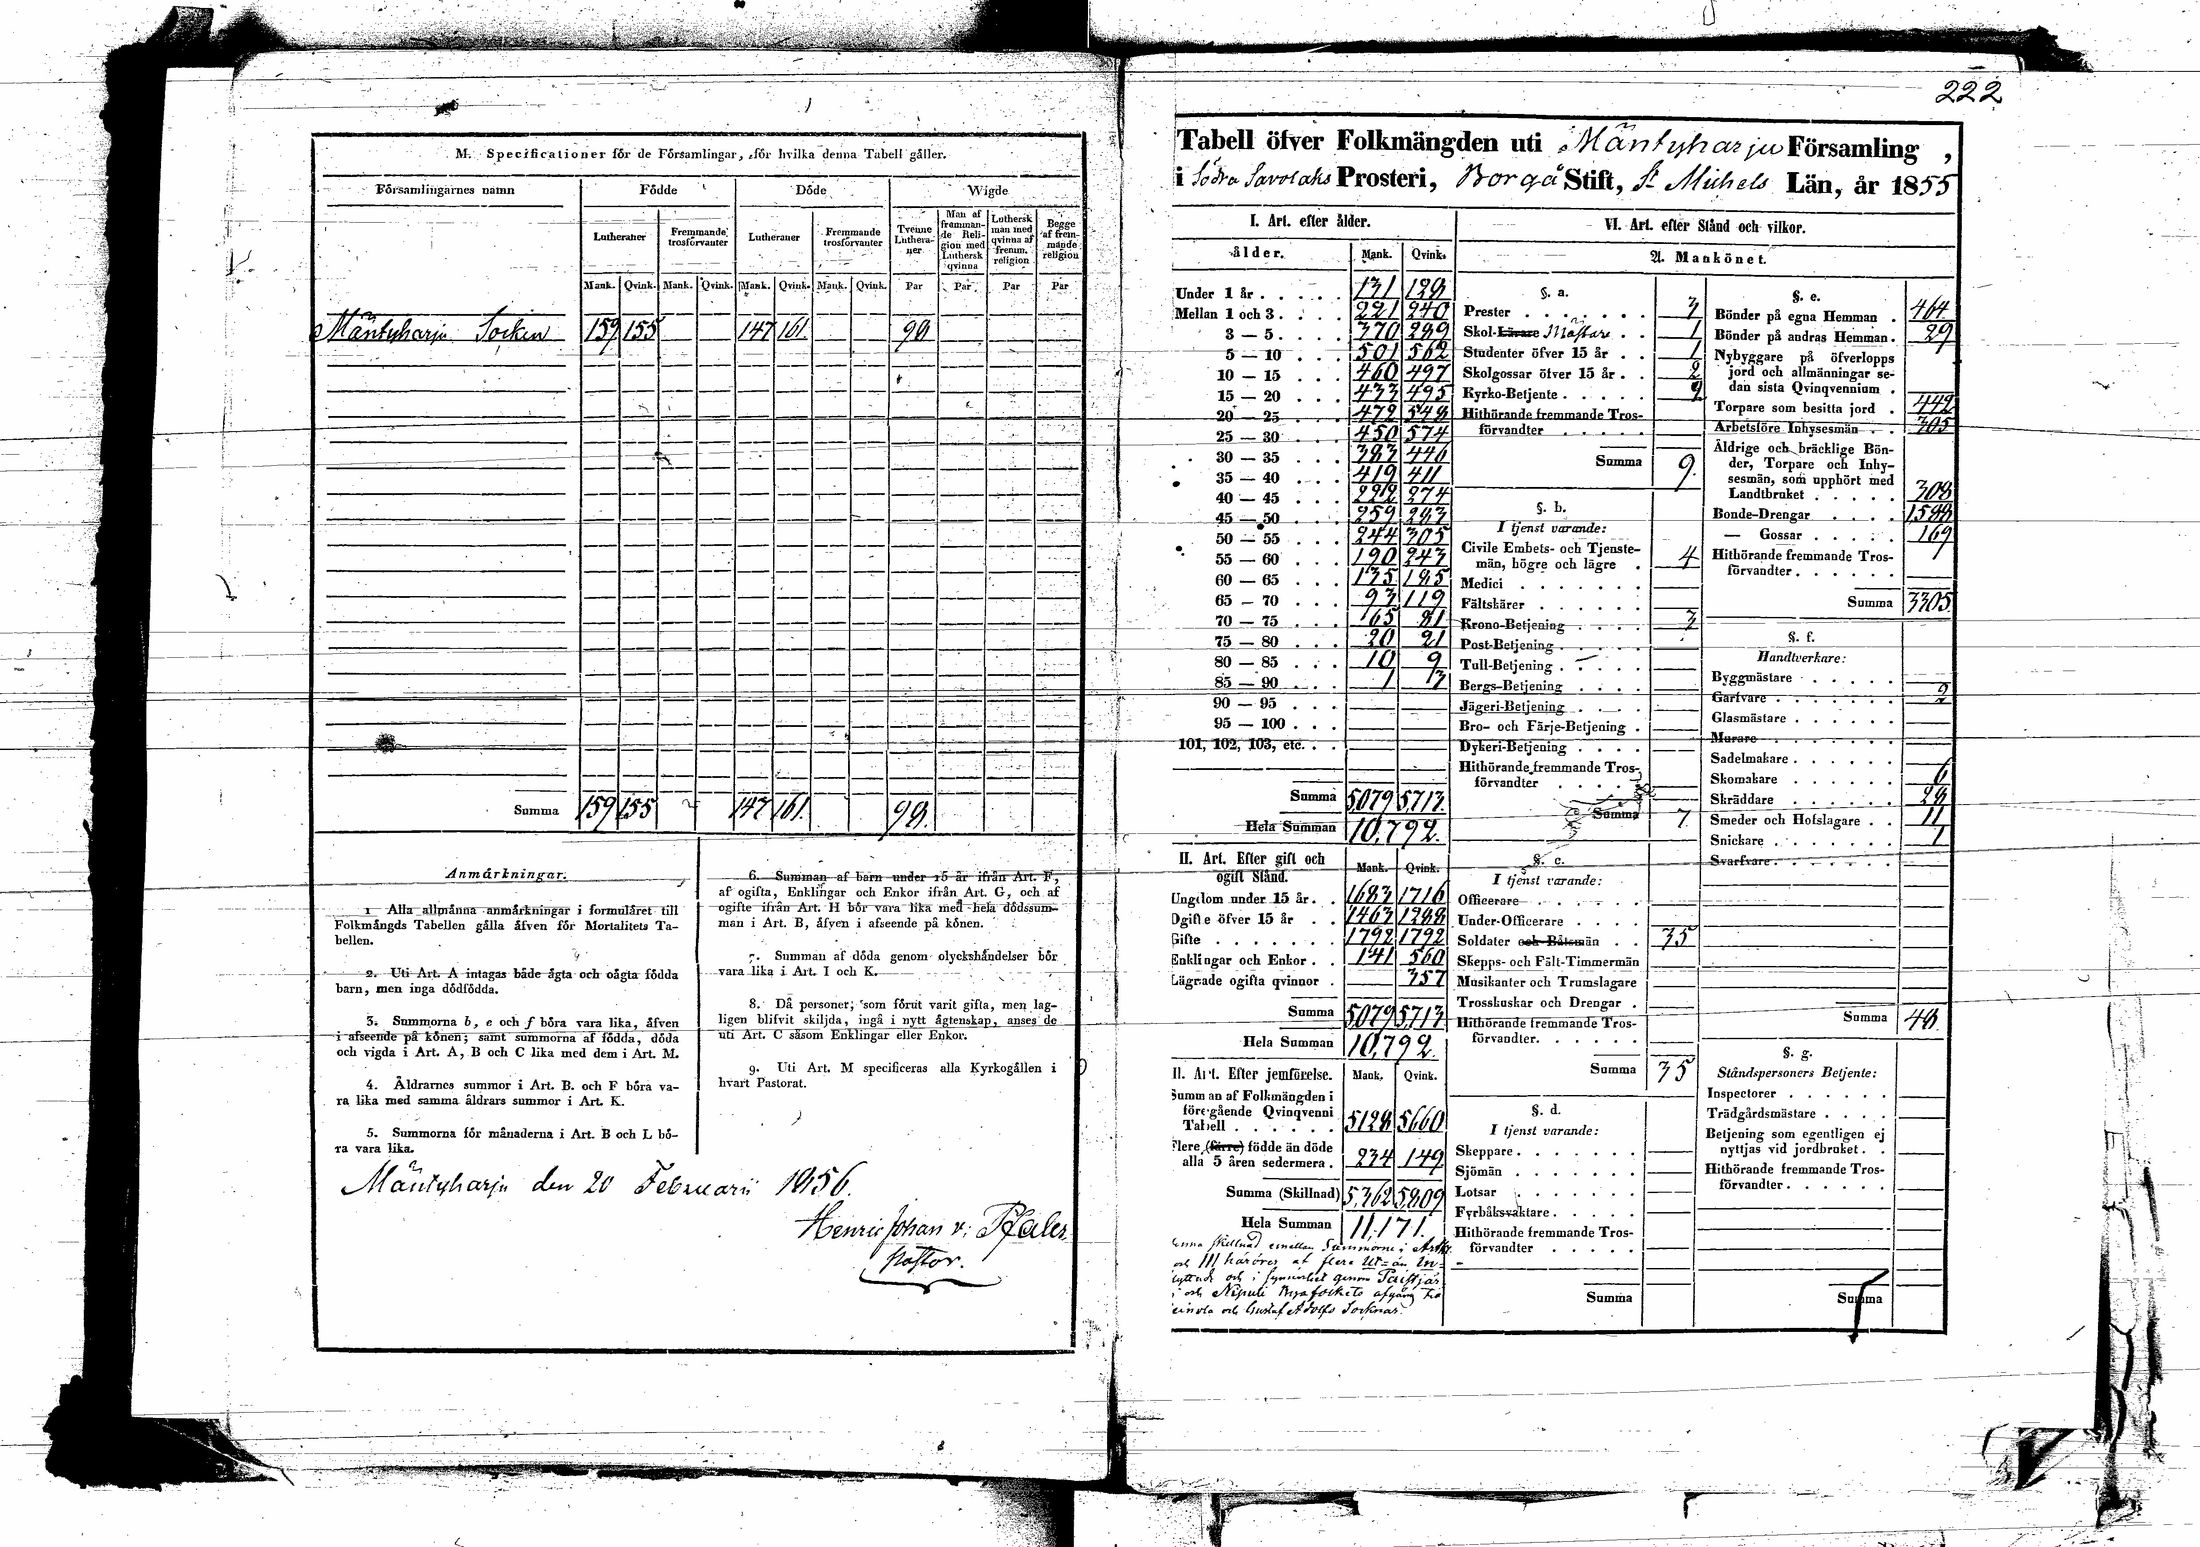 222
M. Specificationer för de Församlingar, för hvilka denna Tabell gäller.
Församlingarnes namn
Födde
Döde
Wigde
Lutheraner
Fremmande trosförvanter
Lutheraner
Fremmande trosförvanter
Tvenne Lutheraner
Man af fremmande Religion med Luthersk qvinna
Luthersk man med qvinna af fremm. religion
Begge af fremmande religion
Mank. Qvink. Mank. Qvink. Mank. Qvink. Mank. Qvink. Par Par Par Par
Mäntyharju Socken 159 155 147 161 99
Summa 159 155 147 161 99.
Anmärkningar.
1 Alla allmänna anmärkningar i formuläret till
Folkmängds Tabellen gälla äfven för Mortalitets Ta-
bellen.
2. Uti Art. A intagas både ägta och oägta födda
barn, men inga dödfödda.
3. Summorna b, e och f böra vara lika, äfven
i afseende på könen; samt summorna af födda, döda
och vigda i Art. A, B och C lika med dem i Art. M.
4. Äldrarnes summor i Art. B. och F böra va-
ra lika med samma åldrars summor i Art. K.
5. Summorna för månaderna i Art. B och L bö-
ra vara lika.
6. Summan af barn under 15 år ifrån Art. F,
af ogifta, Enklingar och Enkor ifrån Art. G, och af
ogifte ifrån Art. H bör vara lika med hela dödssum-
man i Art. B, äfven i afseende på könen.
7. Summan af döda genom olyckshändelser bör
vara lika i Art. I och K.
8. Då personer, som förut varit gifta, men lag-
ligen blifvit skiljda, ingå i nytt ägtenskap, anses de
uti Art. C såsom Enklingar eller Enkor.
9. Uti Art. M specificeras alla Kyrkogällen i
hvart Pastorat.
Mäntyharju den 20 Februarii 1856.
Henric Johan v: Pfaler
Pastor.
Tabell öfver Folkmängden uti Mäntyharju Församling,
i Södra Savolaks Prosteri, Borgå Stift, St Michels Län, år 1855
I. Art. efter ålder.
ålder. Mank. Qvink.
Under 1 år 131 129
Mellan 1 och 3 221 240
3 — 5 370 289
5 — 10 501 562
10 — 15 460 497
15 — 20 433 495
20 — 25 472 548
25 — 30 450 574
30 — 35 383 446
35 — 40 419 411
40 — 45 274
45 — 50 259
50 — 55 244 305
55 — 60 190 243
60 — 65 135 185
65 — 70 93 119
70 — 75 165 81
75 — 80 20 21
80 — 85 10 9
85 — 90 1
90 — 95
95 — 100
101, 102, 103, etc.
Summa 5079 5713.
Hela Summan 10,792.
II. Art. Efter gift och ogift Stånd. Mank. Qvink.
Ungdom under 15 år 1683 1716
Ogifte öfver 15 år 1463 1288
Gifte 1792 1792
Enklingar och Enkor 141 560
Lägrade ogifta qvinnor 357
Summa 5079 5713
Hela Summan 10,792.
II. Art. Efter jemförelse. Mank. Qvink.
Summan af Folkmängden i
föregående Qvinqvenni
Tabell 5128 5660
Flere (färre) födde än döde
alla 5 åren sedermera 234 149
Summa (Skillnad) 5,362 5,809
Hela Summan 11,171.
och Gustaf Adolfs Socknar.
VI. Art. efter Stånd och vilkor.
A. Mankönet.
§. a.
Prester 3
Skol-Lärare Mästare 1
Studenter öfver 15 år 1
Skolgossar öfver 15 år 2
Kyrko-Betjente 2
Hithörande fremmande Tros-
förvandter
Summa 9.
§. b.
I tjenst varande:
Civile Embets- och Tjenste-
män, högre och lägre 4
Medici
Fältskärer
Krono-Betjening 3
Post-Betjening
Tull-Betjening
Bergs-Betjening
Jägeri-Betjening
Bro- och Färje-Betjening
Dykeri-Betjening
Hithörande fremmande Tros-
förvandter
Summa 7
§. c.
I tjenst varande:
Officerare
Under-Officerare
Soldater och Båtsmän 35
Skepps- och Fält-Timmermän
Musikanter och Trumslagare
Trosskuskar och Drengar
Hithörande fremmande Tros-
förvandter
Summa 35
§. d.
I tjenst varande:
Skeppare
Sjömän
Lotsar
Fyrbåksvaktare
Hithörande fremmande Tros-
förvandter
Summa
§. e.
Bönder på egna Hemman 464
Bönder på andras Hemman 29
Nybyggare på öfverlopps
jord och allmänningar se-
dan sista Qvinqvennium
Torpare som besitta jord 442
Arbetsföre Inhysesmän 305
Äldrige och bräcklige Bön-
der, Torpare och Inhy-
sesmän, som upphört med
Landtbruket 308
Bonde-Drengar 1588
— Gossar 169
Hithörande fremmande Tros-
förvandter
Summa 3305
§. f.
Handtverkare:
Byggmästare
Garfvare 2
Glasmästare
Murare
Sadelmakare
Skomakare 6
Skräddare 28
Smeder och Hofslagare 11
Snickare 1
Svarfvare
Summa 48.
§. g.
Ståndspersoners Betjente:
Inspectorer
Trädgårdsmästare
Betjening som egentligen ej
nyttjas vid jordbruket
Hithörande fremmande Tros-
förvandter
Summa